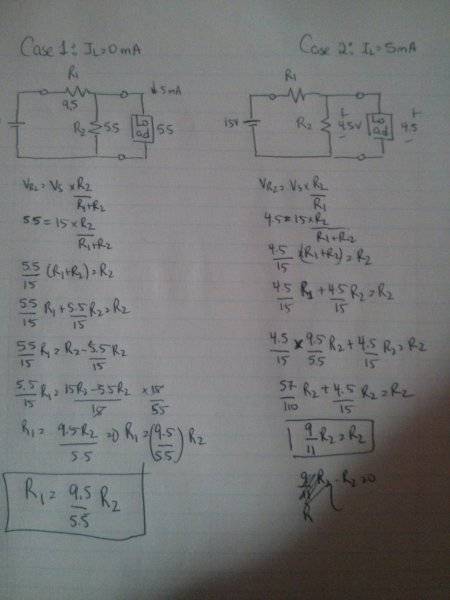 Case 1: IL=0mA
R1
9.5
↓ 5mA
R2
5.5
Lo
ad
5.5
VR2 = Vs x R2/(R1+R2)
5.5 = 15 x R2/(R1+R2)
5.5/15 (R1+R2) = R2
5.5/15 R1 + 5.5/15 R2 = R2
5.5/15 R1 = R2 - 5.5/15 R2
5.5/15 R1 = (15R2 - 5.5R2)/15 x 15/5.5
R1 = 9.5R2/5.5 => R1 = (9.5/5.5) R2
R1 = 9.5/5.5 R2
Case 2: IL=5mA
R1
15V
R2
+
4.5V
-
Lo
ad
+
4.5
-
VR2 = Vs x R2/R1
4.5 = 15 x R2/(R1+R2)
4.5/15 x (R1+R2) = R2
4.5/15 R1 + 4.5/15 R2 = R2
4.5/15 x 9.5/5.5 R2 + 4.5/15 R2 = R2
57/110 R2 + 4.5/15 R2 = R2
9/11 R2 = R2